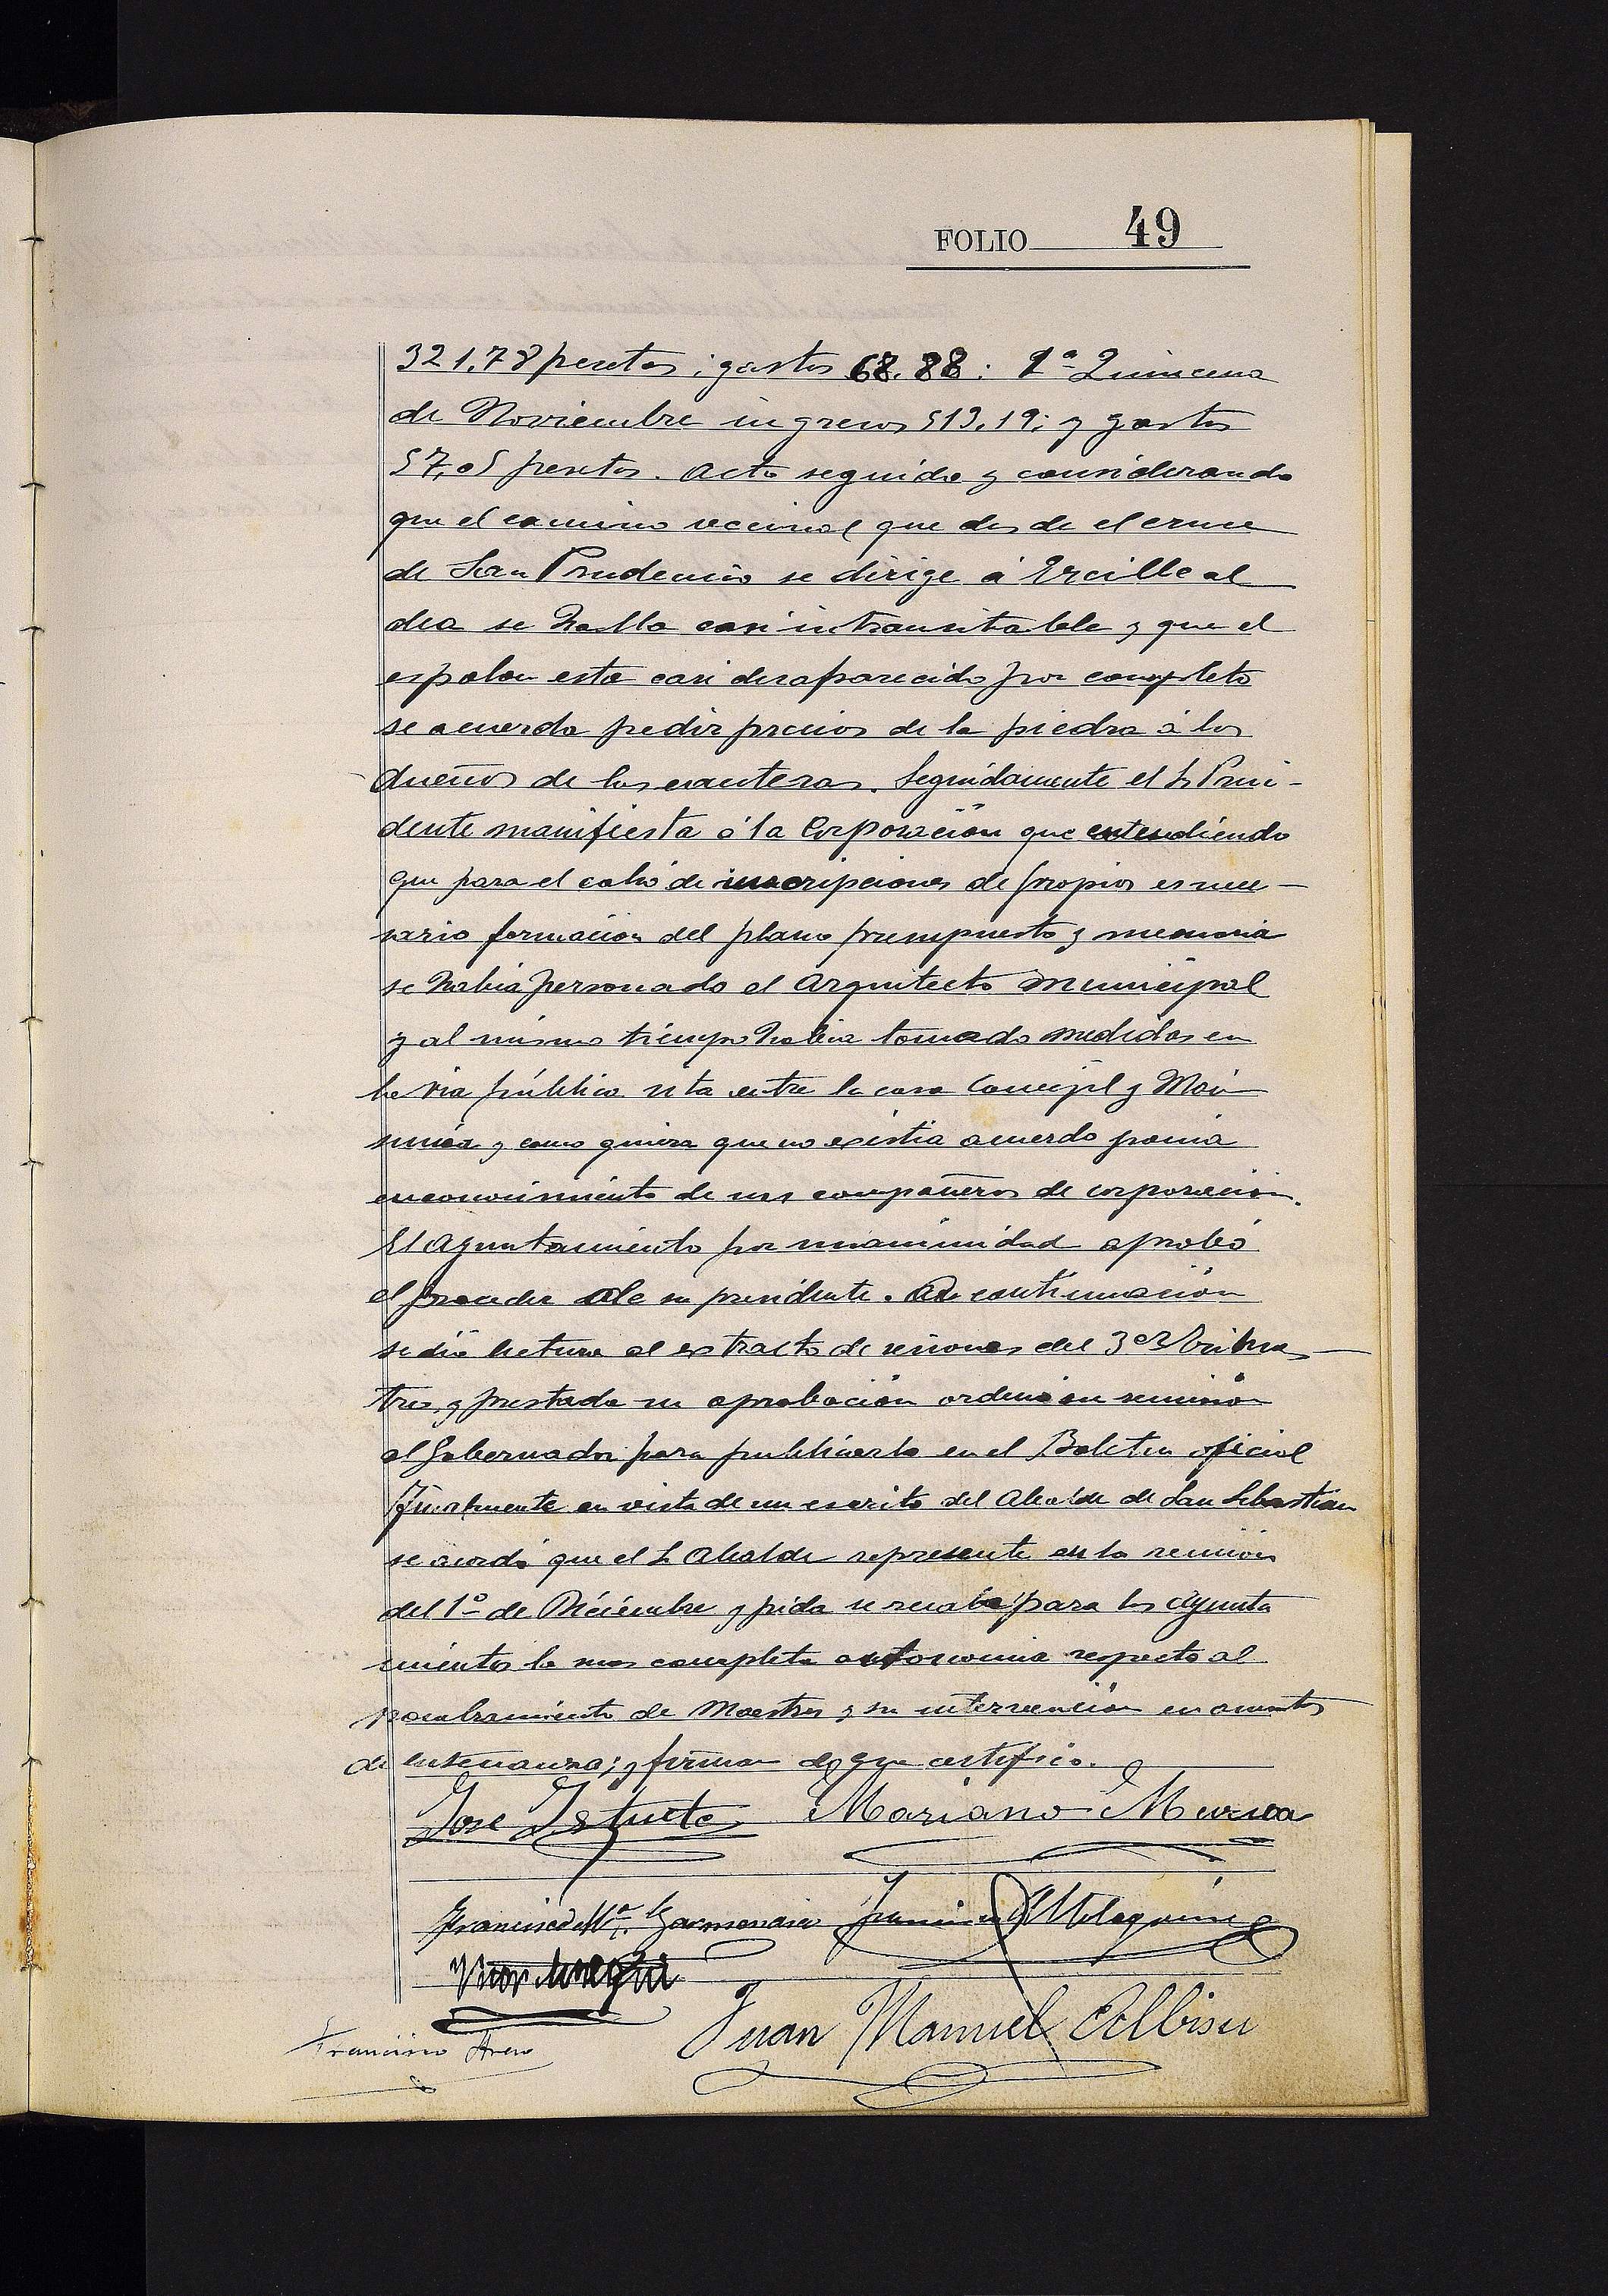 FOLIO 49
321,78 pesetas; gastos 68.88: 1ª Quincena
de Noviembre ingresos 513.19; y gastos
57,05 pesetas. Acto seguido y considerando
que el camino vecinal que desde el cruce
de San Prudencio se dirige á Ercilla al
dia se halla casi intransitable y que el
espolon esta casi desaparecido por completo
se acuerda pedir precios de la piedra á los
dueños de las canteras. Seguidamente el Sr Presi-
dente manifiesta á la Corporación que entendiendo
que para el de inscripciones de propios es nece-
sario formación del plano presupuesto y memoria
se habia personado el Arquitecto municipal
y al mismo tiempo habia tomado medidas en
la via pública sita entre la casa Concejil y
y como quiera que no existia acuerdo ponia
en conocimiento de sus compañeros de corporación.
El Ayuntamiento por unanimidad aprobó
el proceder de su presidente. A continuación
se dió lectura al extracto de sesiones del 3er trimes-
tre, y prestada su aprobación ordenó su remisión
al Gobernador para publicarlo en el Boletin oficial
Finalmente en vista de un escrito del Alcalde de San Sebastian
se acordó que el Sr Alcalde represente en la reunión
del 1º de Diciembre y pida se recabe para los Ayunta
mientos la mas completa autonomia respecto al
nombramiento de Maestros y su intervención en asuntos
de enseñanza; y firman de que certifico.
Jose Mariano Murua
Francisco Mª
Juan Manuel Albisu
Francisco